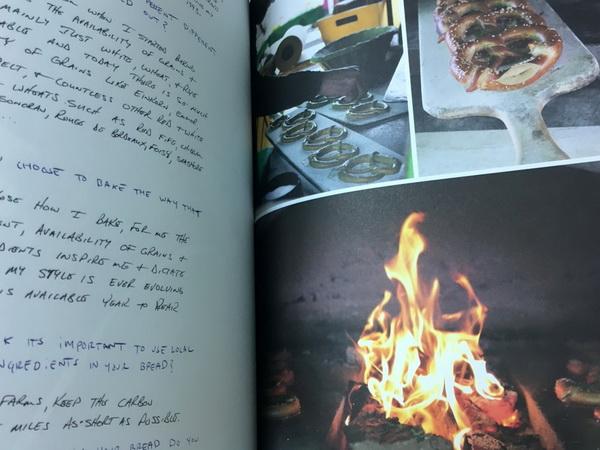 DIFFERENT
OUT?
WHEN I STARTED BAKING,
THE AVAILABILITY OF GRAINS
MAINLY JUST WHITE, WHEAT, + RYE
AND TODAY THERE IS SO MUCH
OF GRAINS LIKE EINKORN, EMMER
+ COUNTLESS OTHER RED + WHITE
WHEATS SUCH AS RED FIFE,
SONORAN, ROUGE DE BORDEAUX,
CHOOSE TO BAKE THE WAY THAT
HOW I BAKE, FOR ME THE
AVAILABILITY OF GRAINS +
INSPIRE ME + DICTATE
MY STYLE IS EVER EVOLVING
IS AVAILABLE YEAR TO YEAR
ITS IMPORTANT TO USE LOCAL
INGREDIENTS IN YOUR BREAD?
FARMS, KEEP THE CARBON
MILES AS SHORT AS POSSIBLE.
YOUR BREAD DO YOU